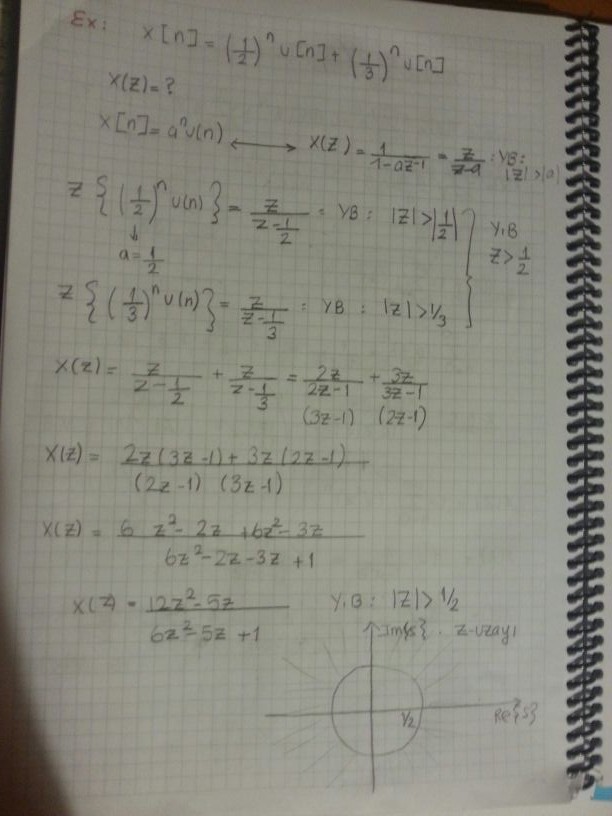 Ex: x[n] = (1/2)^n u[n] + (1/3)^n u[n]
X(z) = ?
x[n] = a^n u(n) ⟷ X(z) = 1/(1-az^-1) = z/(z-a) : YB: |z| > |a|
Z { (1/2)^n u(n) } = z/(z-1/2) : YB : |z| > |1/2|
↓
a = 1/2
Y,B
z > 1/2
Z { (1/3)^n u(n) } = z/(z-1/3) : YB : |z| > 1/3
X(z) = z/(z-1/2) + z/(z-1/3) = 2z/(2z-1) + 3z/(3z-1)
(3z-1) (2z-1)
X(z) = 2z(3z-1) + 3z(2z-1) / (2z-1) (3z-1)
X(z) = 6 z² - 2z + 6z² - 3z / 6z² - 2z - 3z + 1
X(z) = 12z² - 5z / 6z² - 5z + 1 Y,B : |z| > 1/2
Im{s} . z-uzayı
1/2 Re{s}